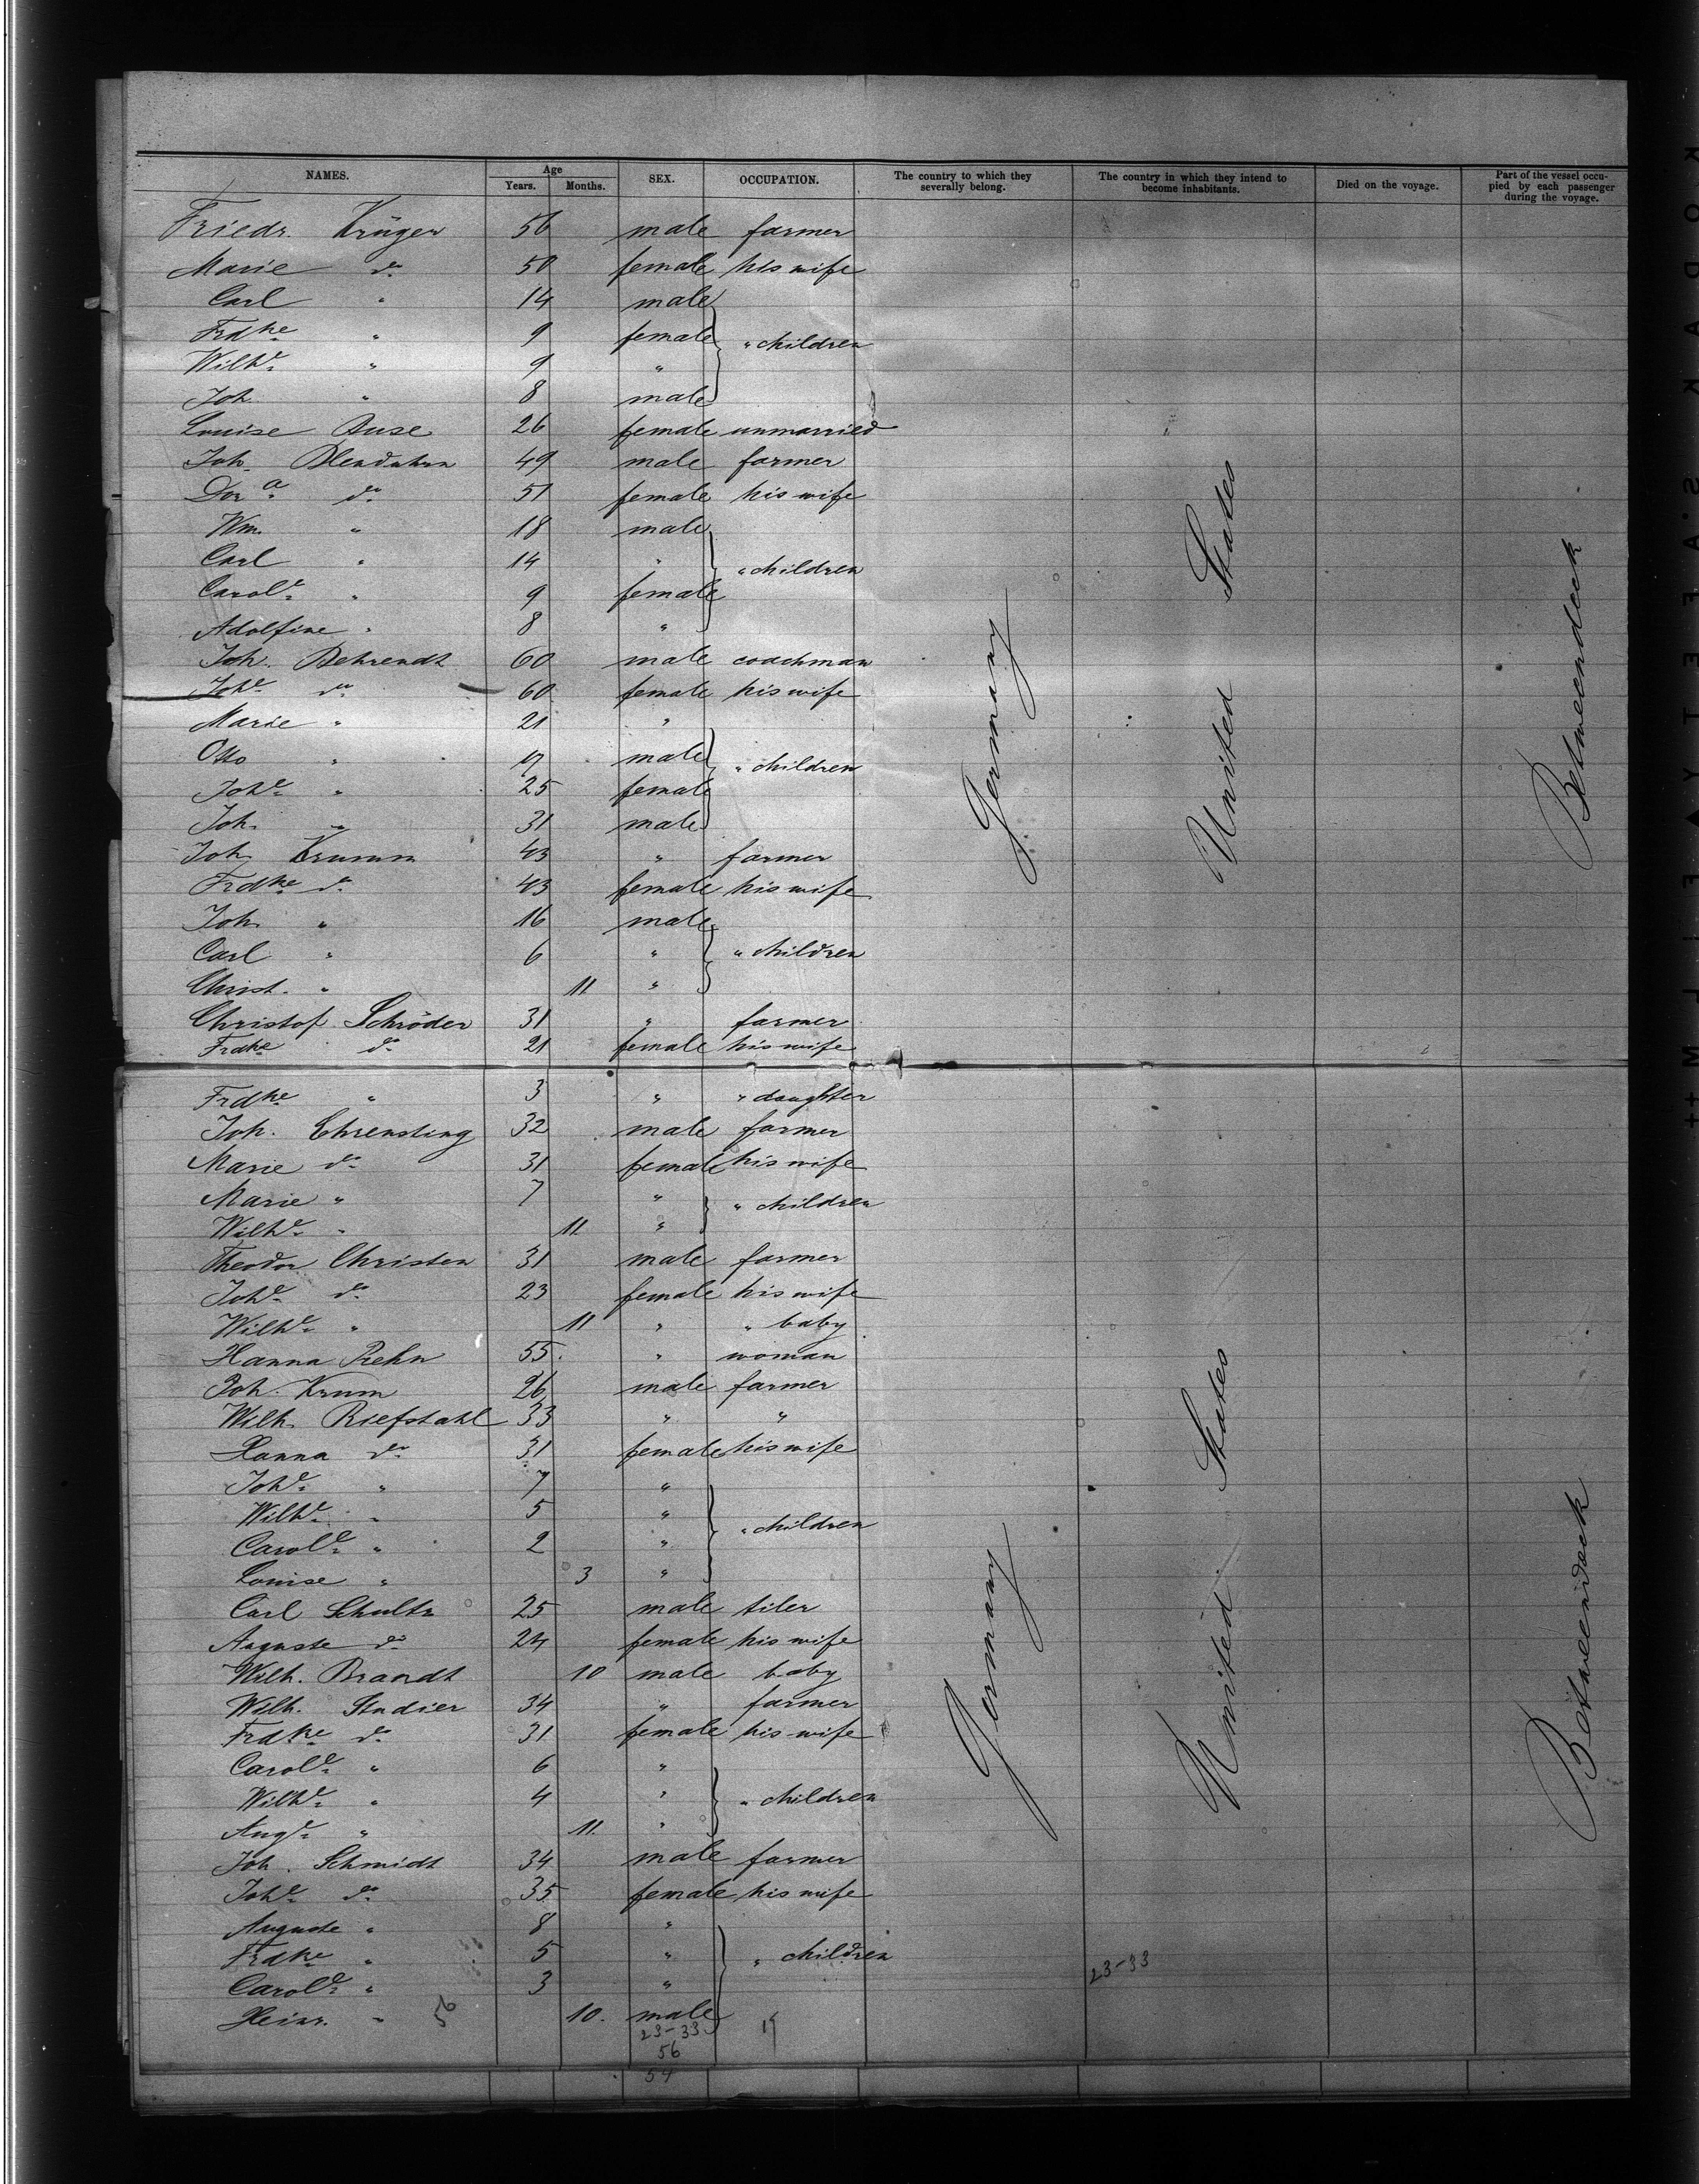 NAMES. Age Years. Months. SEX. OCCUPATION. The country to which they severally belong. The country in which they intend to become inhabitants. Died on the voyage. Part of the vessel occupied by each passenger during the voyage.
Friedr. Krüger 56 male farmer
Marie do. 50 female his wife
Carl " 14 male
Frdke " 9 female " children
Wilhe. " 9 "
Joh. " 8 male
Louise Buse 26 female unmarried
Joh. Blendahn 49 male farmer
Dora. do. 51 female his wife
Wm. " 18 male
Carl " 14 " " children
Carole. " 9 female
Adolfine " 8 "
Joh. Behrendt 60 male coachman
Johe. do. 60 female his wife
Marie " 21 "
Otto " 17 male " children
Johe. " 25 female
Joh. " 31 male
Joh. Krumm 43 " farmer
Frdke do. 43 female his wife
Joh. " 16 male
Carl " 6 " " children
Christ. " 11 "
Christof Schröder 31 " farmer
Frdke do. 21 female his wife
Frdke " 3 " " daughter
Joh. Ehrensting 32 male farmer
Marie do. 31 female his wife
Marie " 7 " " children
Wilhe. " 11 "
Theodor Christen 31 male farmer
Johe. do. 23 female his wife
Wilhe. " 11 " " baby
Hanna Rehn 55. " woman
Joh. Krum 26 male farmer
Wilh. Riefstahl 33 " "
Hanna do. 31 female his wife
Johe. " 7 "
Wilhe. " 5 " " children
Carole. " 2 "
Louise " 3 "
Carl Schultz 25 male tiler
Auguste do. 24 female his wife
Wilh. Brandt 10 male baby
Wilh. Studier 34 " farmer
Frdke do. 31 female his wife
Carole. " 6 "
Wilhe. " 4 " " children
Auge. " 11. "
Joh. Schmidt 34 male farmer
Johe. do. 35 female his wife
Auguste " 8 "
Frdke " 5 " " children
Carole. " 3 "
Heinr. " 10. male
Germany
United States
Betweendeck
Germany
United States
Betweendeck
56
23-33
56
54
23-33